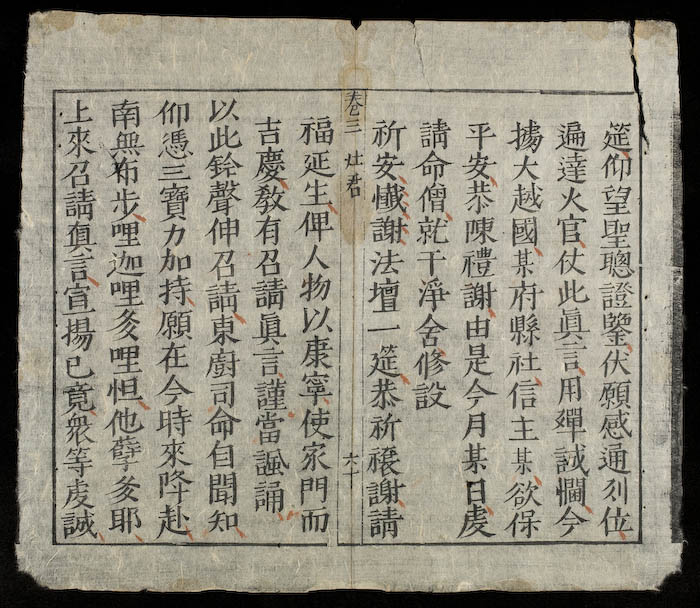 筵仰望聖聰證鑒伏願感通列位
遍達火官仗此眞言用殫誠悃今
據大越國某府縣社信主某欲保
平安恭陳禮謝由是今月某日虔
請命僧就干淨舍修設
祈安懺謝法壇一筵恭祈禳謝請
卷三 灶君 六十
福延生俾人物以康寧使家門而
吉慶敎有召請眞言謹當諷誦
以此鈴聲伸召請東廚司命自聞知
仰憑三寶力加持願在今時來降赴
南無布步哩迦哩多哩怛他孽多耶
上來召請眞言宣揚已竟衆等虔誠